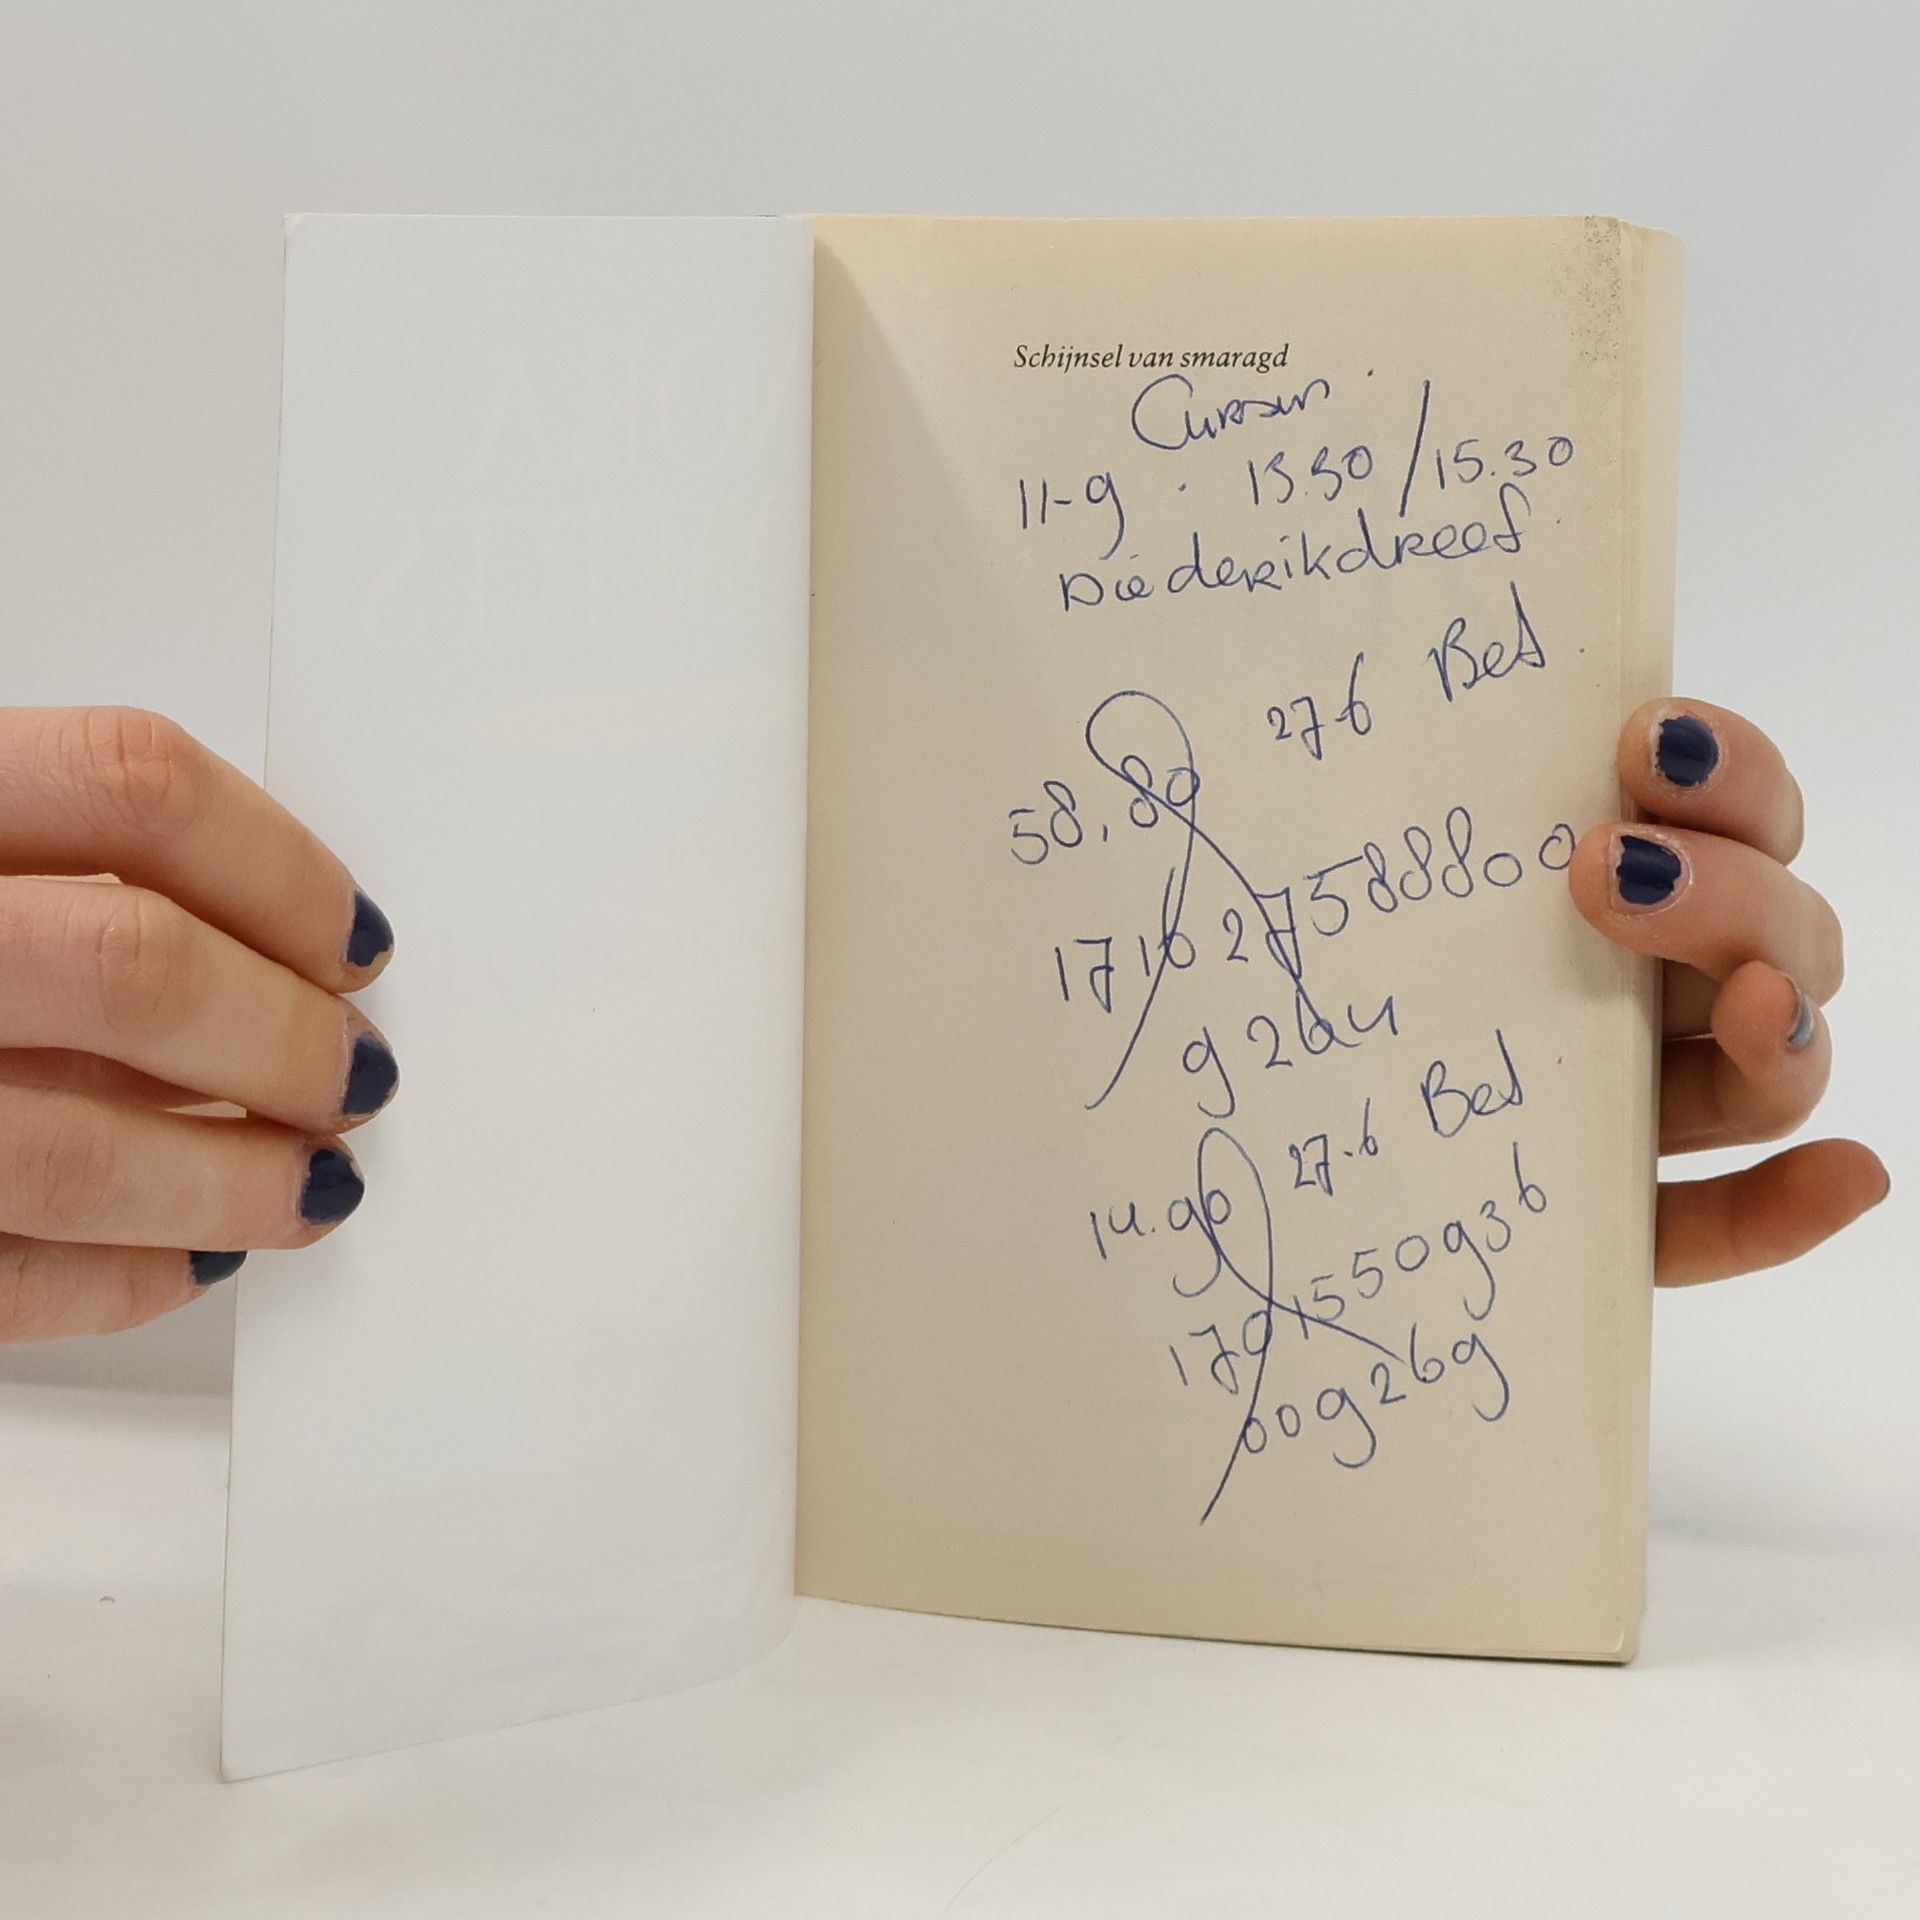 Schijnsel van smaragd
11-9 . 13.30 / 15.30
Diederikdreef.
27-6 Bet.
58,80
1716 27588800
9264
27-6 Bet.
14.90
170 1550936
009269